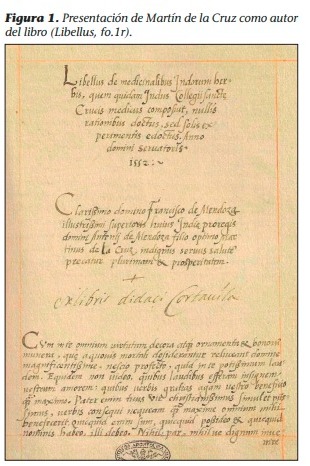 Figura 1. Presentación de Martín de la Cruz como autor
del libro (Libellus, fo.1r).
Libellus de medicinalibus Indorum her-
bis, quem quidam Indus Collegii sancte
Crucis medicus composuit, nullis
rationibus doctus, sed solis ex-
perimentis edoctus. Anno
domini servatoris
1552
Clarissimo domino Francisco de Mendoza
illustrissimi superioris huius Indiæ proregis
domini Antonij de Mendoza filio optimo Mar-
tinus de la Cruz indignus servus salutē
precatur plurimam & prosperitatem.
ex libris didaci Cortavila
Cum inte omnium virtutum decora atqȝ ornamenta & bonorū
munera, quæ a quovis mortali desiderantur reluceant domine
magnificentissime, nescio profecto, quid in te potissimum lau-
dem. Equidem non video, quibus laudibus efferam insignem
vestrum amorem: quibus verbis gratias agam vestro beneficio
qȝ maximo. Pater enim tuus vir christianissimus simulet piis-
simus, verbis consequi nequeam qȝ maxime omnium mihi
benefecerit, quicquid enim sum, quicquid possideo & quicquid
nominis habeo, illi debeo. Nihil par, nihil